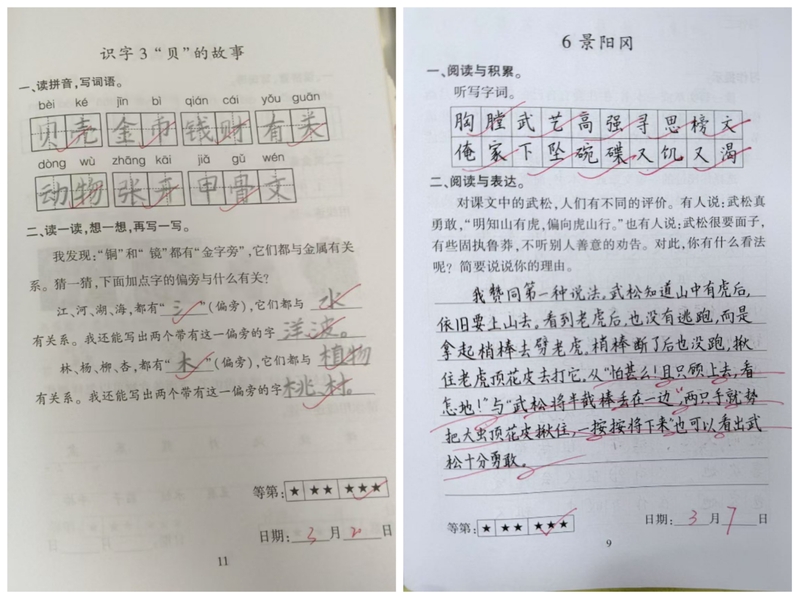 识字3“贝”的故事
一、读拼音,写词语。
bèi ké jīn bì qián cái yǒu guān
贝壳 金币 钱财 有关
dòng wù zhāng kāi jiǎ gǔ wén
动物 张开 甲骨文
二、读一读,想一想,再写一写。
我发现:“铜”和“镜”都有“金字旁”,它们都与金属有关
系。猜一猜,下面加点字的偏旁与什么有关?
江、河、湖、海,都有“氵”(偏旁),它们都与 水
有关系。我还能写出两个带有这一偏旁的字 洋波。
林、杨、柳、杏,都有“木”(偏旁),它们都与 植物
有关系。我还能写出两个带有这一偏旁的字 桃村。
等第: ★ ★★ ★★★
日期: 3 月 20 日
11
6 景阳冈
一、阅读与积累。
听写字词。
胸膛武艺高强寻思榜文
俺家下坠碗碟又饥又渴
二、阅读与表达。
对课文中的武松,人们有不同的评价。有人说:武松真
勇敢,“明知山有虎,偏向虎山行。”也有人说:武松很要面子,
有些固执鲁莽,不听别人善意的劝告。对此,你有什么看法
呢?简要说说你的理由。
我赞同第一种说法,武松知道山中有虎后,
依旧要上山去。看到老虎后,也没有逃跑,而是
拿起梢棒去劈老虎,梢棒断了后也没跑,揪
住老虎顶花皮去打它,从“怕甚么!且只顾上去,看
怎地!”与“武松将半截棒丢在一边,两只手就势
把大虫顶花皮揪住,一按按将下来”也可以看出武
松十分勇敢。
等第: ★ ★★ ★★★
日期: 3 月 7 日
9